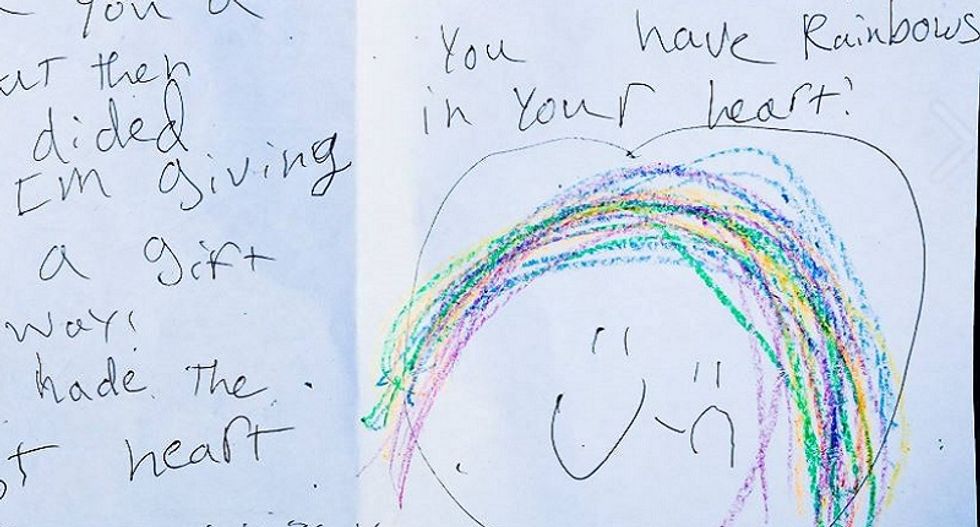 You a
then
dided
Im giving
a gift
way!
hade The
heart
You have Rainbows
in Your heart!